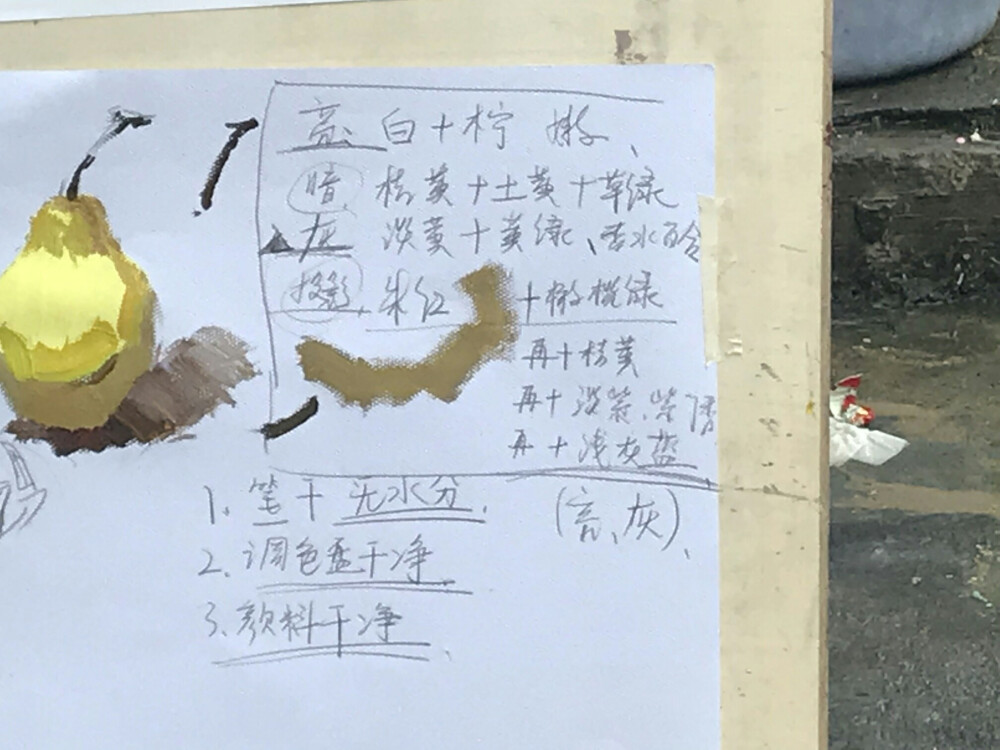 亮 白+柠 嫩、
暗 桔黄+土黄+草绿
灰 淡黄+黄绿、香水百合
投影. 朱红 +橄榄绿
再+桔黄
再+淡紫、紫
再+浅灰蓝
1. 笔干无水分.
(亮、灰)、
2、调色盘干净
3、颜料干净